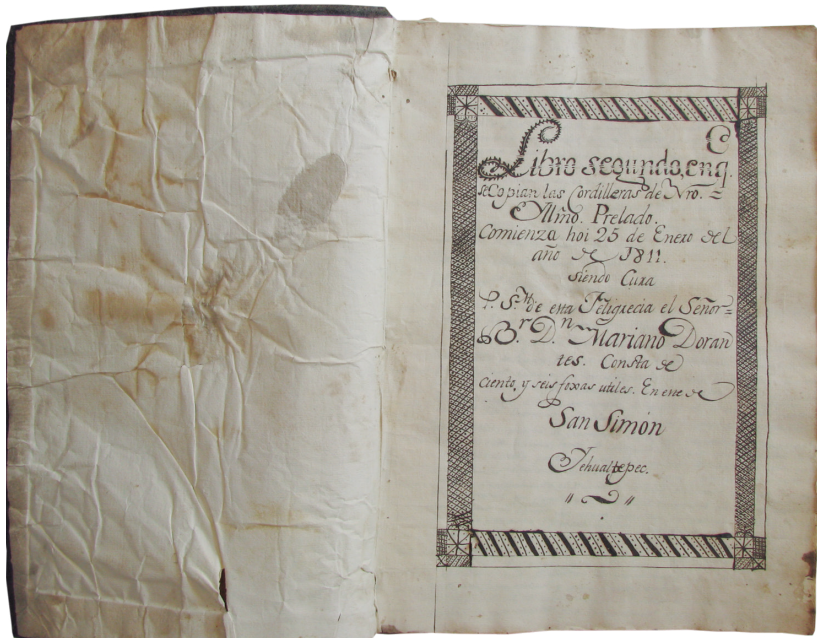 Libro segundo, enq.
se Copian las Cordilleras de Nro.=
Yllmô. Prelado.
Comienza hoi 25 de Enero del
año de 1811.
siendo Cura
P. S. M. de esta Feligrecia el Señor=
Br. Dn. Mariano Doran
tes. Consta de
ciento, y seis foxas utiles. En este de
San Simón
Tehualtepec.